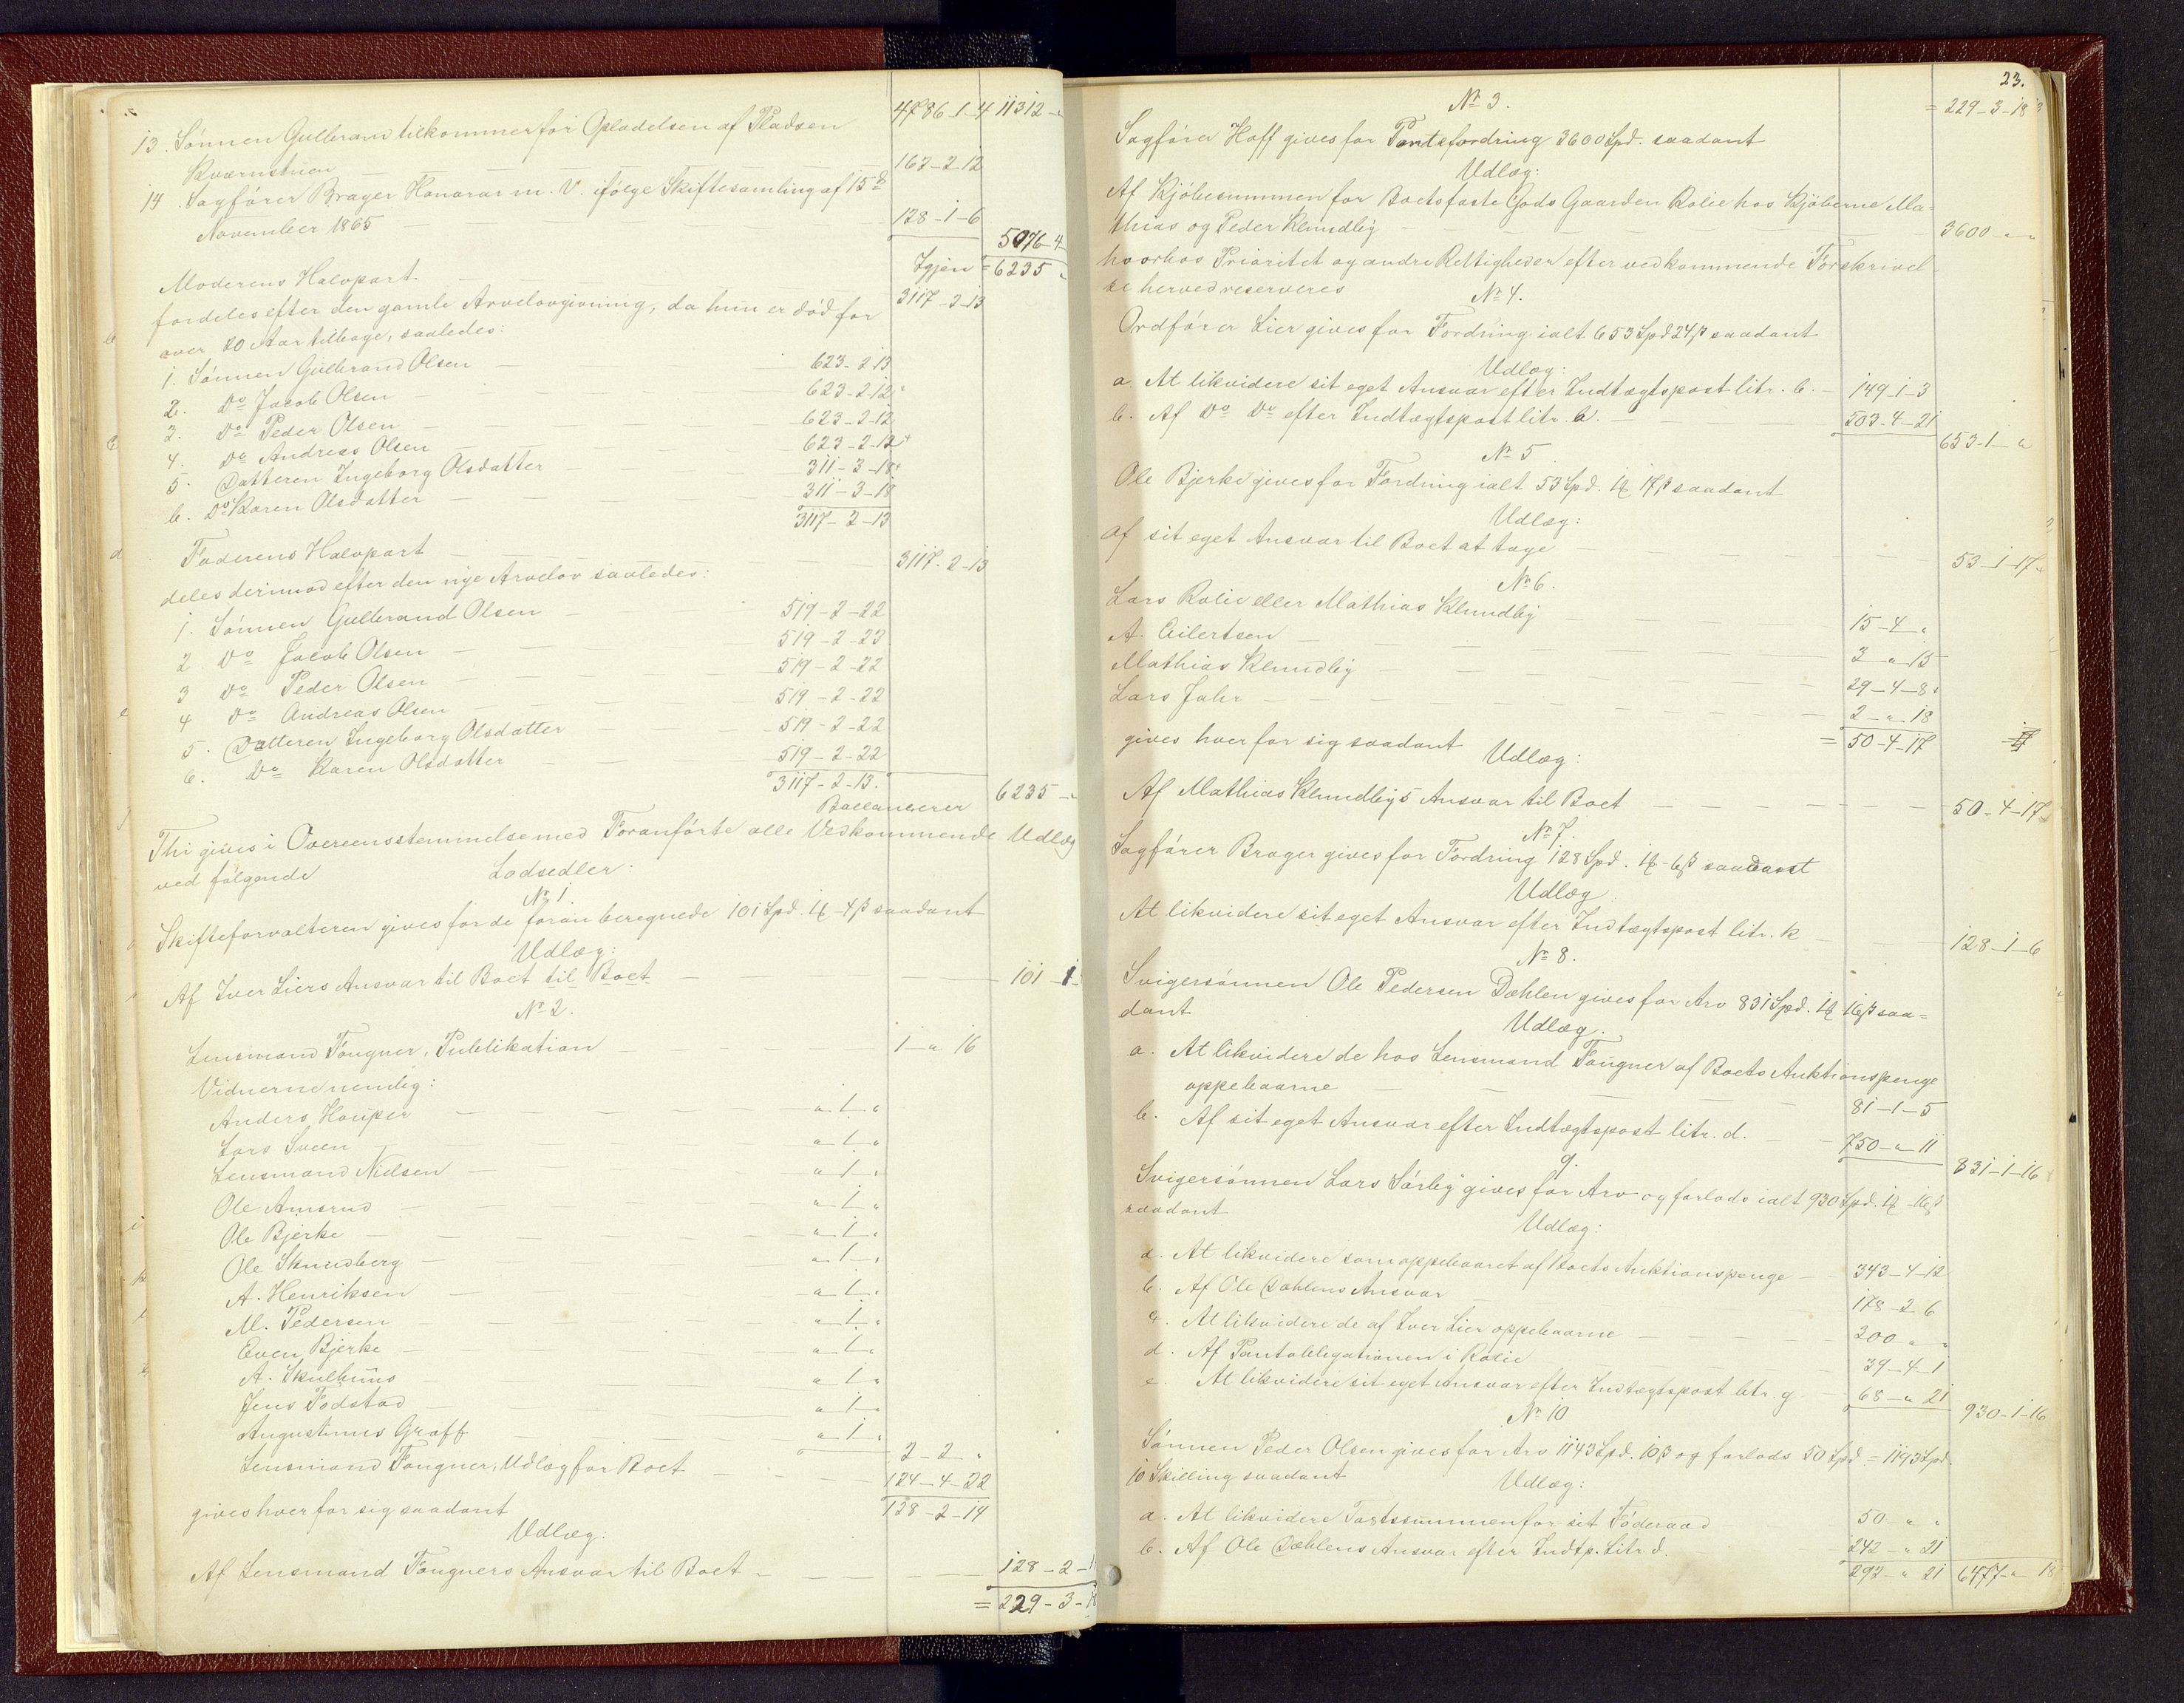 4786-1-4 11312 - "
13. Sønnen Gulbrand tilkommer for Opladelsen af Pladsen
Kværnstuen — 163-2-12
14. Sagfører Brager Honorar m. V. ifølge Skiftesamling af 15de
November 1865 — 128-1-6
5076-4
Igjen = 6235 "
Moderens Halvpart — 3117-2-13
fordeles efter den gamle Arvelovgivning, da hun er død for
over 20 Aar tilbage, saaledes:
1. Sønnen Gulbrand Olsen — 623-2-13
2. Do Jacob Olsen — 623-2-12
3. Do Peder Olsen — 623-2-12
4. Do Andreas Olsen — 623-2-12
5. Datteren Ingeborg Olsdatter — 311-3-18
6. Do Karen Olsdatter — 311-3-18
3117-2-13
Faderens Halvpart — 3117-2-13
deles derimod efter den nye Arvelov saaledes:
1. Sønnen Gulbrand Olsen — 519-2-22
2 Do Jacob Olsen — 519-2-23
3 Do Peder Olsen — 519-2-22
4 Do Andreas Olsen — 519-2-22
5. Datteren Ingeborg Olsdatter — 519-2-22
6. Do Karen Olsdatter — 519-2-22
3117-2-13.
Ballancerer 6235 - "
Thi gives i Overensstemmelse med Foranførte alle Vedkommende Udlæg
ved følgende Lodsedler:
No 1.
Skifteforvalteren gives for de foran beregnede 101 Spd. 1 ₰ - 4 β saadant
Udlæg:
Af Iver Liers Ansvar til Boet til Boet — 101-1-
No 2.
Lensmand Fougner, Publikation — 1 - " 16
Vidnerne nemlig:
Anders Houper — " 1 "
Lars Sveen — " 1 "
Lensmand Nielsen — " 1 "
Ole Amsrud — " 1 "
Ole Bjerke — " 1 "
Ole Skundberg — " 1 "
A. Henriksen — " 1 "
M. Pedersen — " 1 "
Even Bjerke — " 1 "
A. Skulhuus — " 1 "
Jens Fodstad — " 1 "
Augustinus Graff — " 1 "
2-2 "
Lensmand Fougner, Udlæg for Boet — 124-4-22
gives hver for sig saadant 128-2-14
Udlæg:
Af Lensmand Fougners Ansvar til Boet — 128-2-1
= 229-3-18
23.
No 3. = 229-3-18
Sagfører Hoff gives for Pantefordring 3600 Spd. saadant
Udlæg:
Af Kjøbesummen for Boets faste Gods Gaarden Rolie hos Kjøberne Ma=
thias og Peder Klundby — 3600 " "
hvorhos Prioritet og andre Rettigheder efter vedkommende Forskrivel
se herved reserveres No 4.
Ordfører Lier gives for Fordring ialt 653 Spd 24 β saadant
Udlæg:
a. At likvidere sit eget Ansvar efter Indtægtspost litr. b. — 149-1-3
b. Af Do Do efter Indtægtspost litr. a. — 503-4-21
653-1- "
No 5
Ole Bjerke gives for Fordring ialt 53 Spd. 1 ₰ 17 β saadant
Udlæg:
af sit eget Ansvar til Boet at tage — 53-1-17
No 6.
Lars Rolie eller Mathias Klundby — 15-4 "
A. Eilertsen — 3 " 15
Mathias Klundby — 29-4-8
Lars Jahr — 2 - " 18
gives hver for sig saadant = 50-4-17
Udlæg:
Af Mathias Klundbys Ansvar til Boet — 50-4-17
No 7.
Sagfører Brager gives for Fordring 128 Spd. 1 ₰ - 6 β saadant
Udlæg
At likvidere sit eget Ansvar efter Indtægtspost litr. k — 128-1-6
No 8.
Svigersønnen Ole Pedersen Dæhlen gives for Arv 831 Spd. 1 ₰ 16 β saa=
dant
Udlæg.
a. At likvidere de hos Lensmand Fougner af Boets Auktionspenge
oppebaarne — 81-1-5
b. Af sit eget Ansvar efter Indtægtspost litr. d. — 750 - " 11
831-1-16
9.
Svigersønnen Lars Sørby gives for Arv og forlods ialt 930 Spd. 1 ₰ - 16 β
saadant
Udlæg:
a. At likvidere som oppebaaret af Boets Auktionspenge — 343-4-12
b. Af Ole Dæhlens Ansvar — 178-2-6
c. At likvidere de af Iver Lier oppebaarne — 200 " "
d. Af Pantobligationen i Rolie — 39-4-1
e. At likvidere sit eget Ansvar efter Indtægtspost litr. g. — 68 - " 21
930-1-16
No 10
Sønnen Peder Olsen gives for Arv 1143 Spd. 10 β og forlods 50 Spd = 1193 Spd.
10 Skilling saadant
Udlæg:
a. At likvidere Taxtsummen for sit Føderaad — 50 - " "
b. Af Ole Dæhlens Ansvar efter Indtp. Litr d. — 242 - " 21
292 - " 21 6477 - " 18